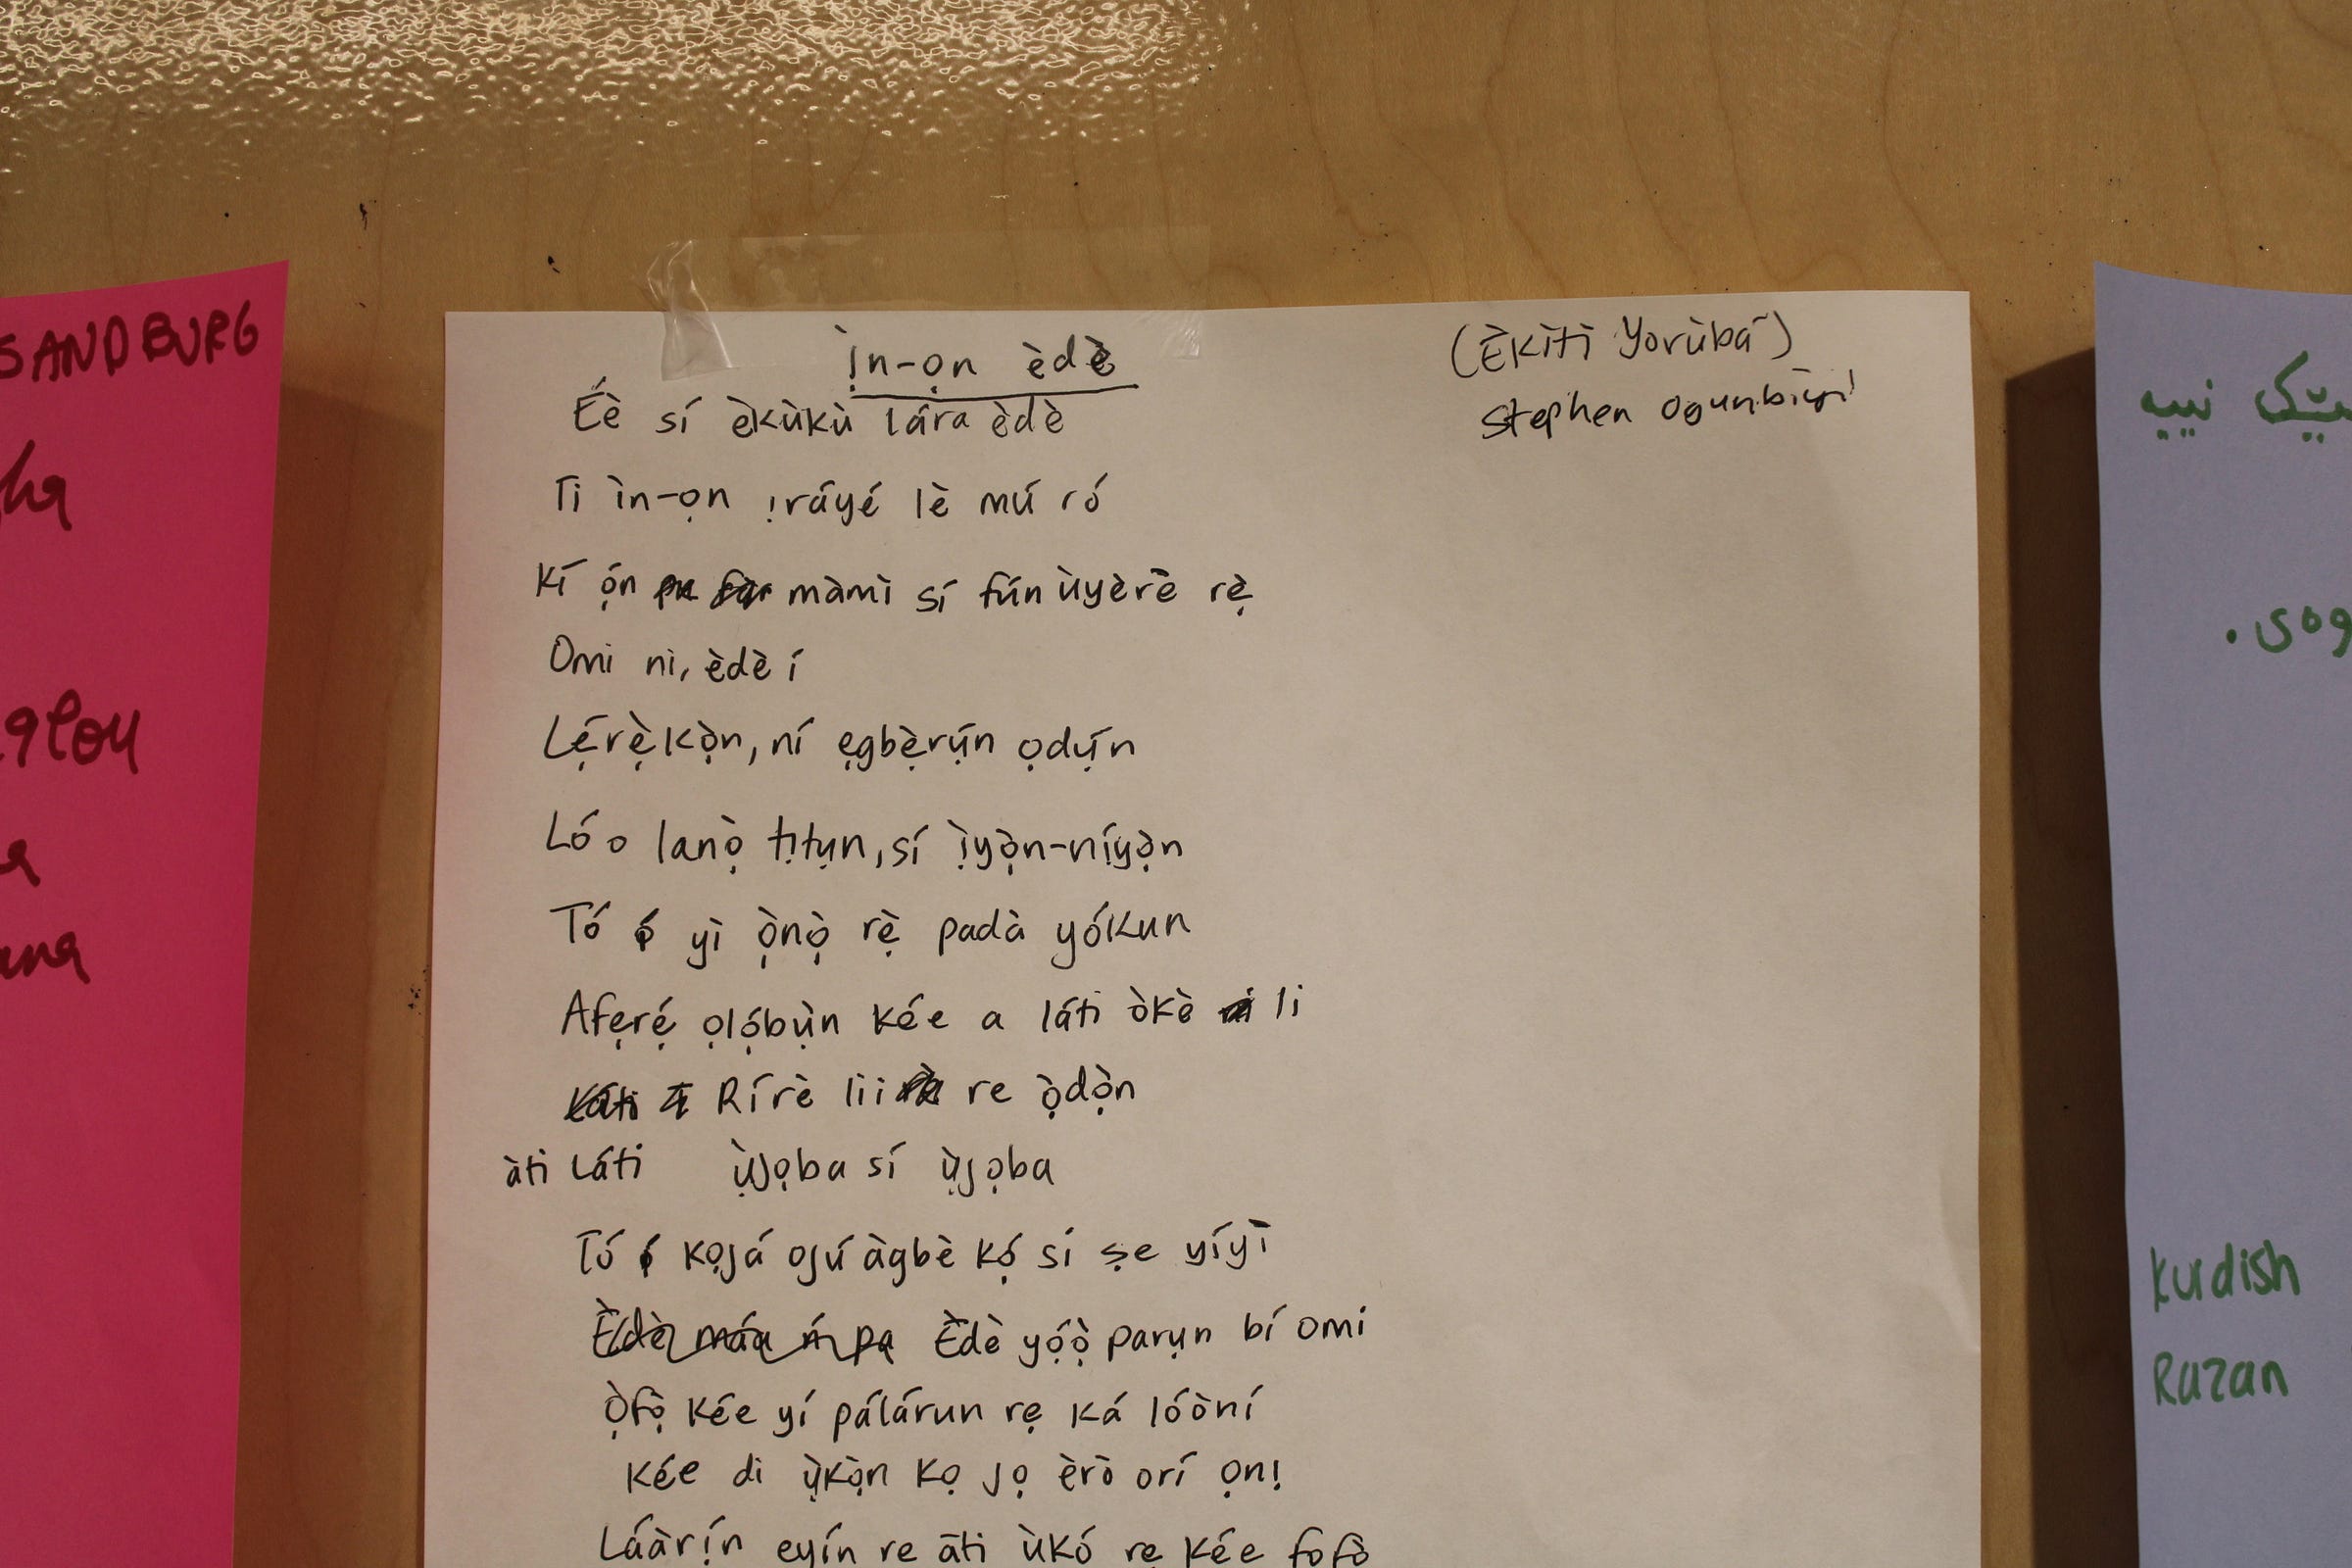 SANDBURG
Ị̀n-ọn èdè
(Èkìtì Yorùbá)
Stephen Ogunbiyi
Éè sí èkùkù lára èdè
Ti ìn-ọn ịráyé lè mú ró
Kí ọ́n màmì sí fún ùyèrè rẹ̀
Omi nì, èdè í
Lẹ́rẹ̀kọ̀n, ní ẹgbẹ̀rụ́n ọdụ́n
Ló o lanọ̀ tịtụn, sí ị̀yọ̀n-níyọ̀n
Tó ó yì ọ̀nọ̀ rẹ̀ padà yókun
Afẹrẹ́ ọlọ́bụ̀n kée a láti òkè li
Rírè lii re ọ̀dọ̀n
àti Láti ụ̀jọba sí ụ̀jọba
Tó ó kọjá ojú àgbè kọ́ sí ṣe yíyì
Èdè yọ́ọ̀ parụn bí omi
Ọ̀fọ̀ kée yí pálárun rẹ ká lóòní
Kée di ụ̀kọ̀n kọ jọ èrò orí ọn!
Láàrịn eyín re āti ùkó rẹ kée fofò
نییە
Kurdish
Razan